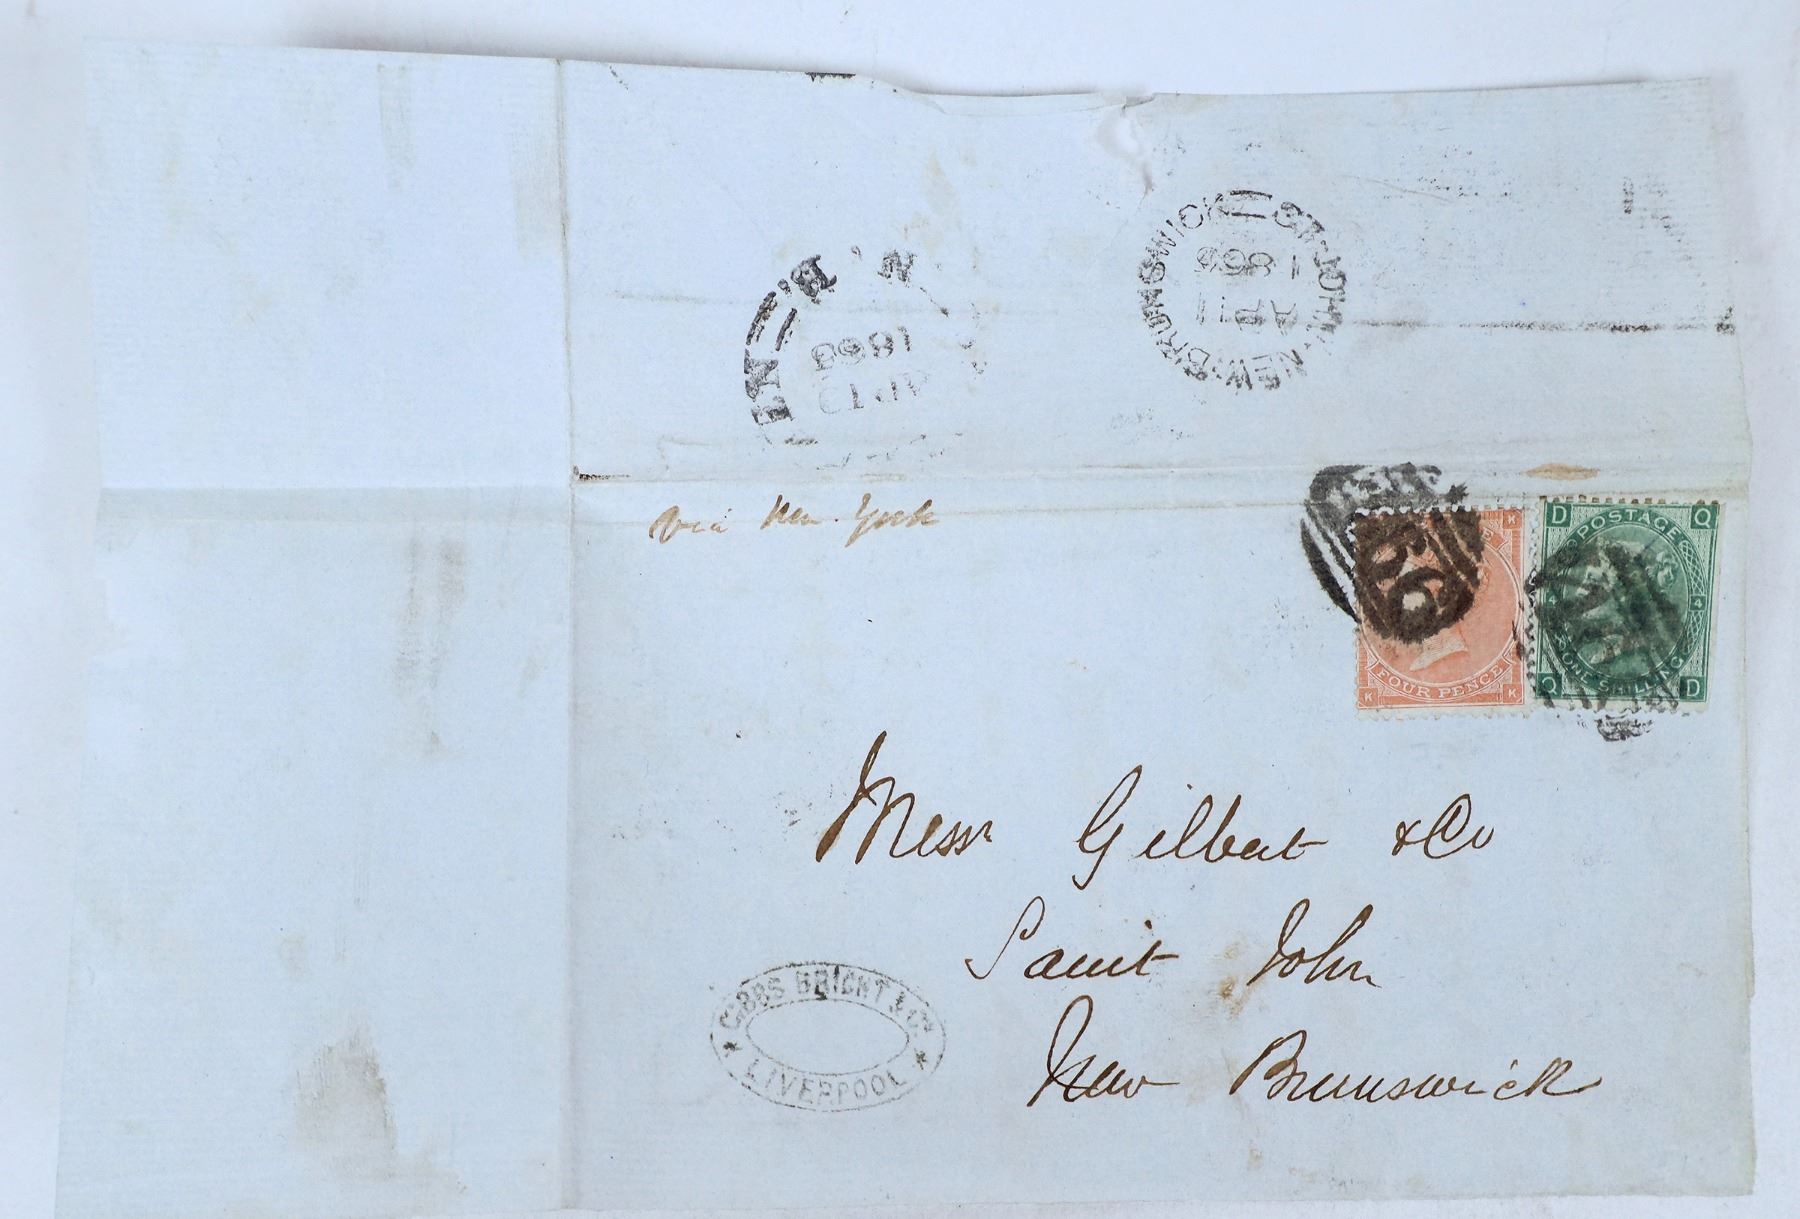 N. B.
1868
ST. JOHN. NEW.BRUNSWICK
AP 11
via New York
D POSTAGE Q
4 4
ONE SHILLING
Q D
K
FOUR PENCE
K K
Messr Gilbert & Co
Saint John
New Brunswick
GIBBS BRIGHT & Co
LIVERPOOL